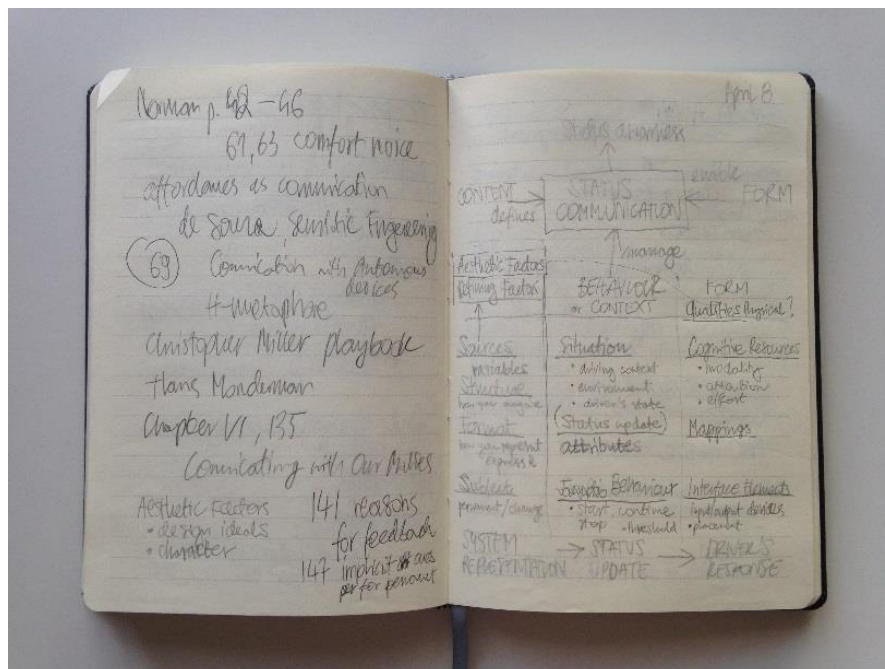 Norman p. 42 – 46
61, 63 comfort noise
affordances as comunication
de Souza, Semiotic Engineering
69
Comunication with Autonomous
devices
H-metaphore
Christopher Miller playbook
Hans Monderman
Chapter VI, 135
Comunicating with Our Machines
Aesthetic Factors
• design ideals
• character
141 reasons
for feedback
147 implicit
for
April 8
Status awareness
CONTENT
defines
STATUS
COMMUNICATION
enable
FORM
manage
Aesthetic Factors
Defining Factors
BEHAVIOUR
or CONTEXT
FORM
Qualities Physical?
Sources
variables
Structure
how you organize
Format
how you represent
express it
Subject
permanent/change
Situation
• driving context
• environment
• driver's state
(Status update)
attributes
Behaviour
• start continue
stop - threshold
Cognitive Resources
• modality
• attention
• effort
Mappings
Interface Elements
input/output devices
• placement
SYSTEM
REPRESENTATION
→ STATUS
UPDATE
→ DRIVER'S
RESPONSE